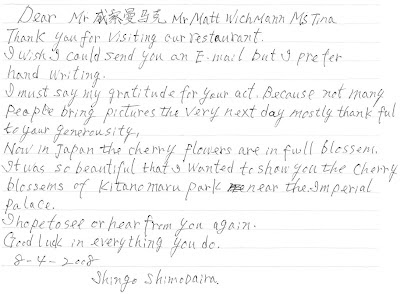 Dear Mr 威察曼马克 Mr Matt Wichmann Ms Tina
Thank you for visiting our restaurant.
I wish I could send you an E-mail but I prefer
hand writing.
I must say my gratitude for your act. Because not many
people bring pictures the very next day mostly thankful
to your generousity,
Now in Japan the cherry flowers are in full blossem.
It was so beautiful that I wanted to show you the cherry
blossems of Kitanomaru park near the Imperial
palace.
I hope to see or hear from you again.
Good luck in everything you do.
8-4-2008
Shingo Shimodaira.